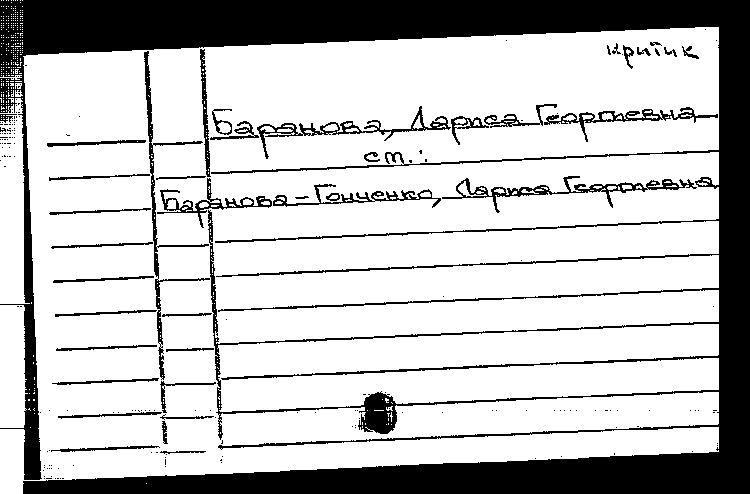 критик
Баранова, Лариса Георгиевна
см.:
Баранова-Гонченко, Лариса Георгиевна